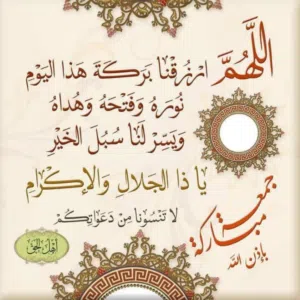 اللَّهُمَّ ارْزُقْنَا بَرَكَةَ هَذَا اليَوْمِ
نُورَهُ وَفَتْحَهُ وَهُدَاهُ
وَيَسِّرْ لَنَا سُبُلَ الخَيْرِ
يَا ذَا الجَلَالِ وَالإِكْرَامِ
لَا تَنْسُونَا مِنْ دَعَوَاتِكُمْ
جمعة
مباركة
بإذن الله
أهل الحق